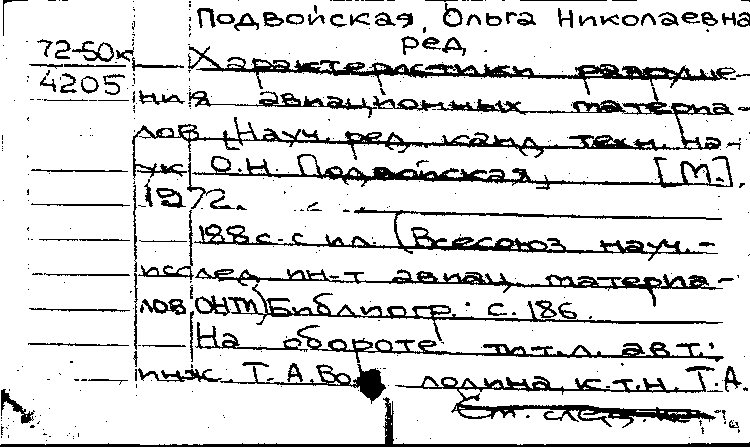 Подвойская, Ольга Николаевна
ред.
72-50к
4205
Характеристики разруше-
ния авиационных материа-
лов. [Науч. ред. канд. техн. на-
ук О.Н. Подвойская]. [М.],
1972.
188 с. с ил. (Всесоюз науч.-
исслед ин-т авиац. материа-
лов. ОНТИ) Библиогр.: с. 186.
На обороте тит. л. авт.:
инж. Т.А. Володина, к.т.н. Т.А.